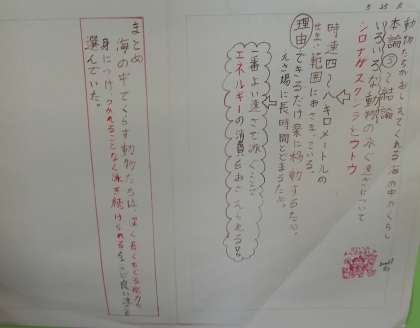 5 25 月
動物たちがおしえてくれる海の中のくらし
本論③〜結論
いろいろな動物の泳ぐ速さについて
シロナガスクジラとウトウ
時速四〜八キロメートルの
範囲におさまっている。
理由
できるだけ楽に移動するため。
えさ場に長時間とどまるため。
一番よい速さで泳ぐことで
エネルギーの消費をおさえられる。
まとめ
海の中でくらす動物たちは、深く長くもぐる能力を
身につけ、つかれることなく泳ぎ続けられるちょうど良い速さを
選んでいた。